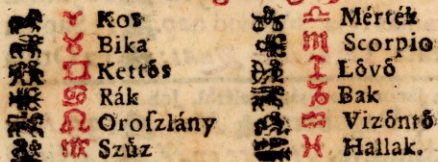 ♈ Kos
♉ Bika
♊ Kettős
♋ Rák
♌ Oroſzlány
♍ Szűz
♎ Mérték
♏ Scorpio
♐ Lővő
♑ Bak
♒ Vizőntő
♓ Hallak.